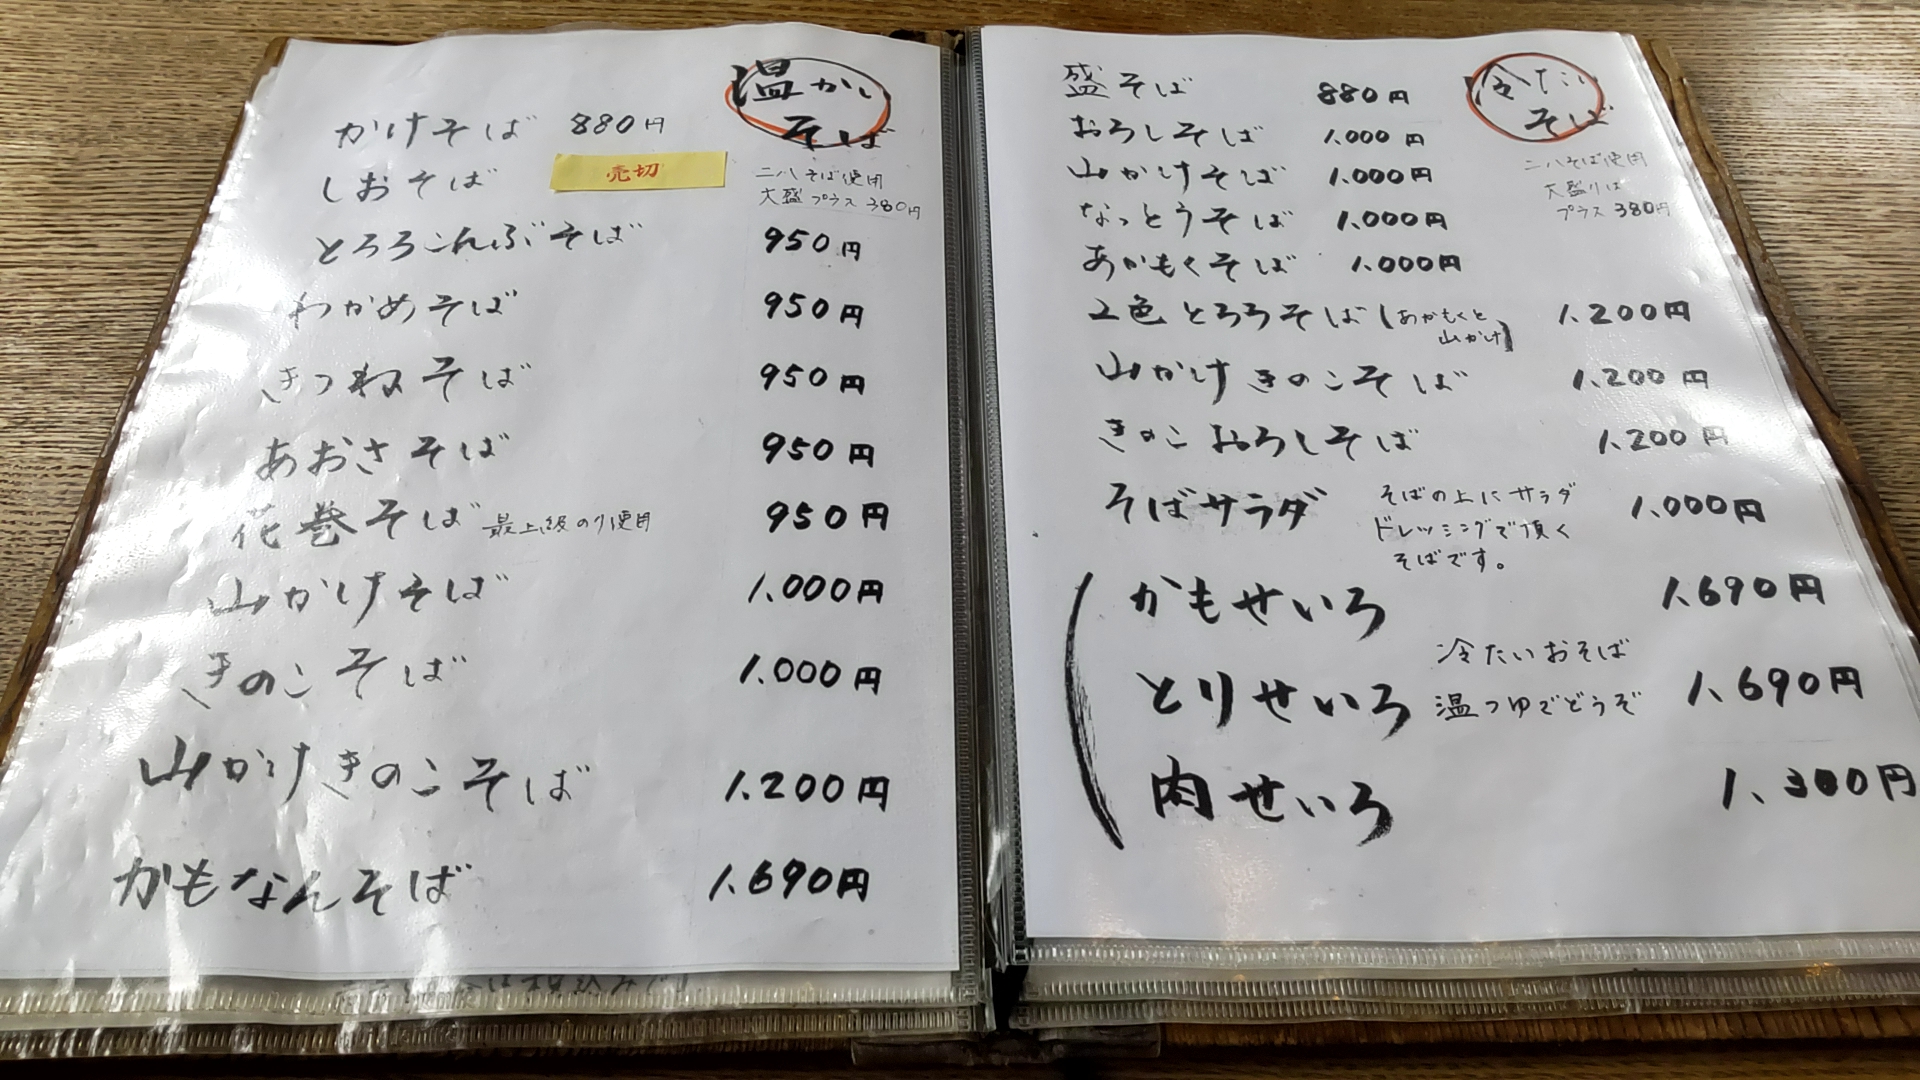 温かい
そば
かけそば 880円
しおそば 売切
二八そば使用
大盛プラス380円
とろろこんぶそば 950円
わかめそば 950円
きつねそば 950円
あおさそば 950円
花巻そば 最上級のり使用 950円
山かけそば 1.000円
きのこそば 1.000円
山かけきのこそば 1.200円
かもなんそば 1.690円
冷たい
そば
盛そば 880円
おろしそば 1.000円
山かけそば 1.000円
二八そば使用
大盛りは
プラス380円
なっとうそば 1.000円
あかもくそば 1.000円
2色とろろそば(あかもくと
山かけ) 1.200円
山かけきのこそば 1.200円
きのこおろしそば 1.200円
そばサラダ 1.000円
そばの上にサラダ
ドレッシングで頂く
そばです。
かもせいろ 1.690円
とりせいろ 1.690円
冷たいおそば
温つゆでどうぞ
肉せいろ 1.300円